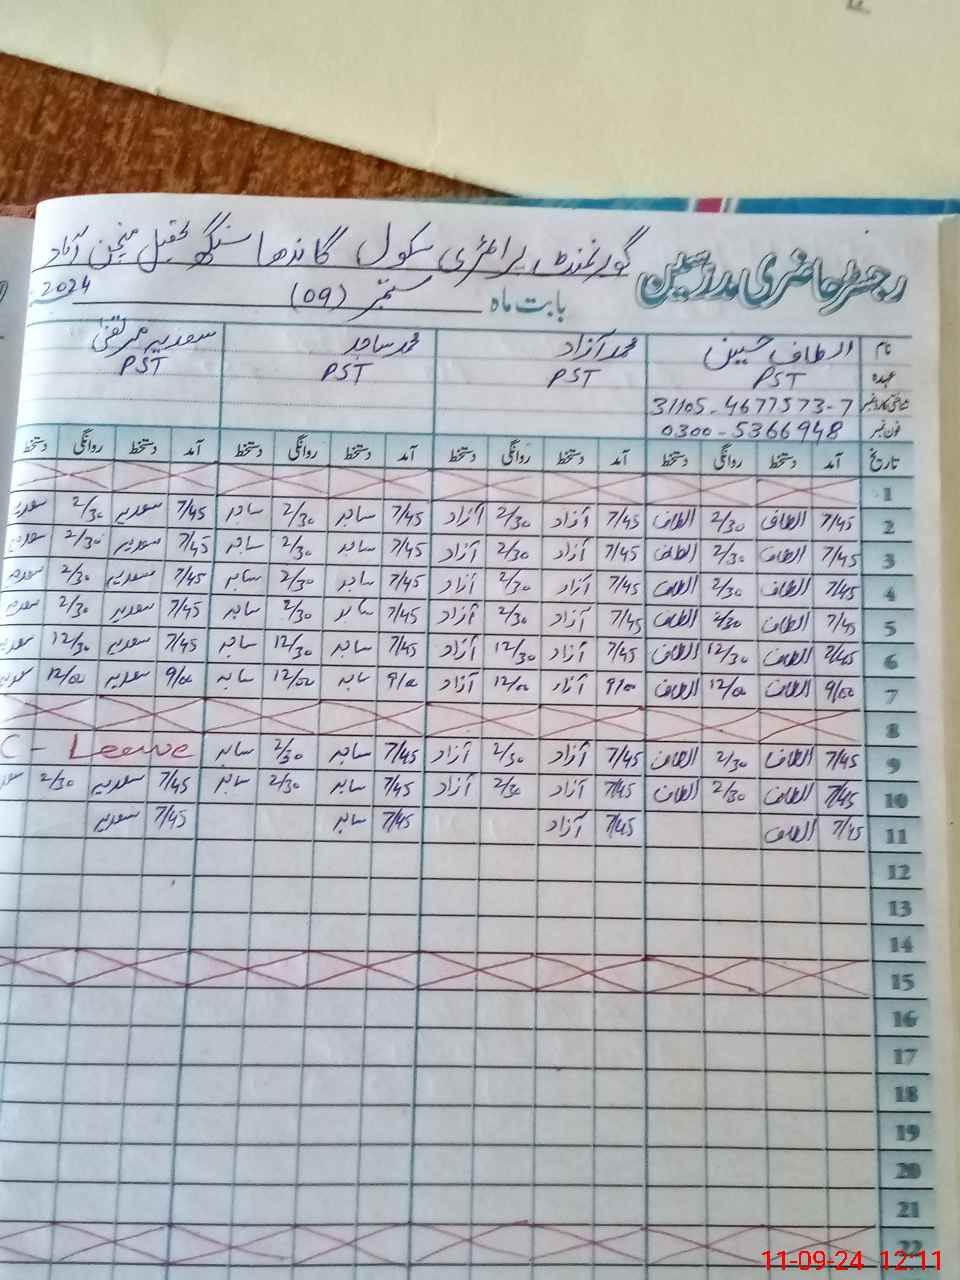 رجسٹر حاضری مدرسین گورنمنٹ پرائمری سکول گاندھا سنگھ تحصیل منچن آباد
بابت ماہ ستمبر (09) 2024
نام الطاف حسین محمد آزاد محمد ساجد سعدیہ مرتضیٰ
عہدہ PST PST PST PST
شناختی کارڈ نمبر 31105-4677573-7
فون نمبر 0300-5366948
تاریخ آمد دستخط روانگی دستخط آمد دستخط روانگی دستخط آمد دستخط روانگی دستخط آمد دستخط روانگی دستخط
1
2 7/45 الطاف 2/30 الطاف 7/45 آزاد 2/30 آزاد 7/45 ساجد 2/30 ساجد 7/45 سعدیہ 2/30 سعدیہ
3 7/45 الطاف 2/30 الطاف 7/45 آزاد 2/30 آزاد 7/45 ساجد 2/30 ساجد 7/45 سعدیہ 2/30 سعدیہ
4 7/45 الطاف 2/30 الطاف 7/45 آزاد 2/30 آزاد 7/45 ساجد 2/30 ساجد 7/45 سعدیہ 2/30 سعدیہ
5 7/45 الطاف 2/30 الطاف 7/45 آزاد 2/30 آزاد 7/45 ساجد 2/30 ساجد 7/45 سعدیہ 2/30 سعدیہ
6 7/45 الطاف 12/30 الطاف 7/45 آزاد 12/30 آزاد 7/45 ساجد 12/30 ساجد 7/45 سعدیہ 12/30 سعدیہ
7 9/00 الطاف 12/00 الطاف 9/00 آزاد 12/00 آزاد 9/00 ساجد 12/00 ساجد 9/00 سعدیہ 12/00 سعدیہ
8
9 7/45 الطاف 2/30 الطاف 7/45 آزاد 2/30 آزاد 7/45 ساجد 2/30 ساجد C - Leewe
10 7/45 الطاف 2/30 الطاف 7/45 آزاد 2/30 آزاد 7/45 ساجد 2/30 ساجد 7/45 سعدیہ 2/30
11 7/45 الطاف 7/45 آزاد 7/45 ساجد 7/45 سعدیہ
12
13
14
15
16
17
18
19
20
21
22
11-09-24 12:11